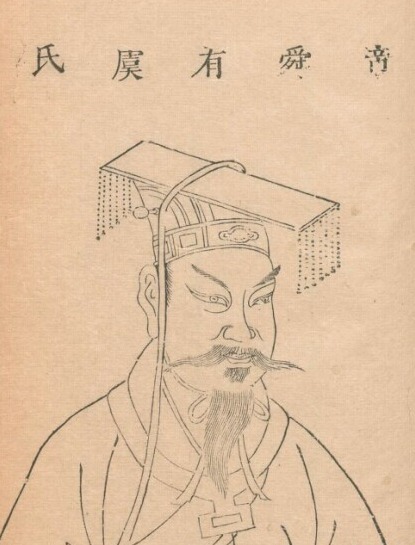 帝舜有虞氏